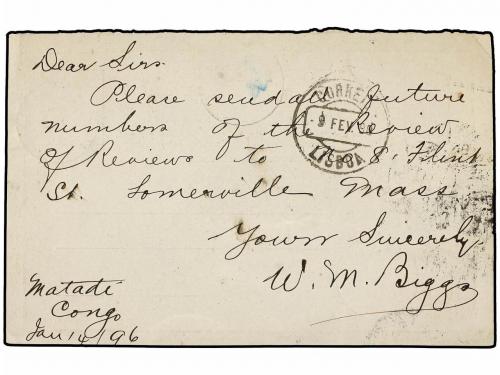 Dear Sirs
Please send all future
numbers of the Review
of Reviews to 8. Flint
St. Somerville Mass
Yours Sincerely
W. M. Biggs
Matadi
Congo
Jan 14/96
CORREIO
9 FEV.
LISBOA